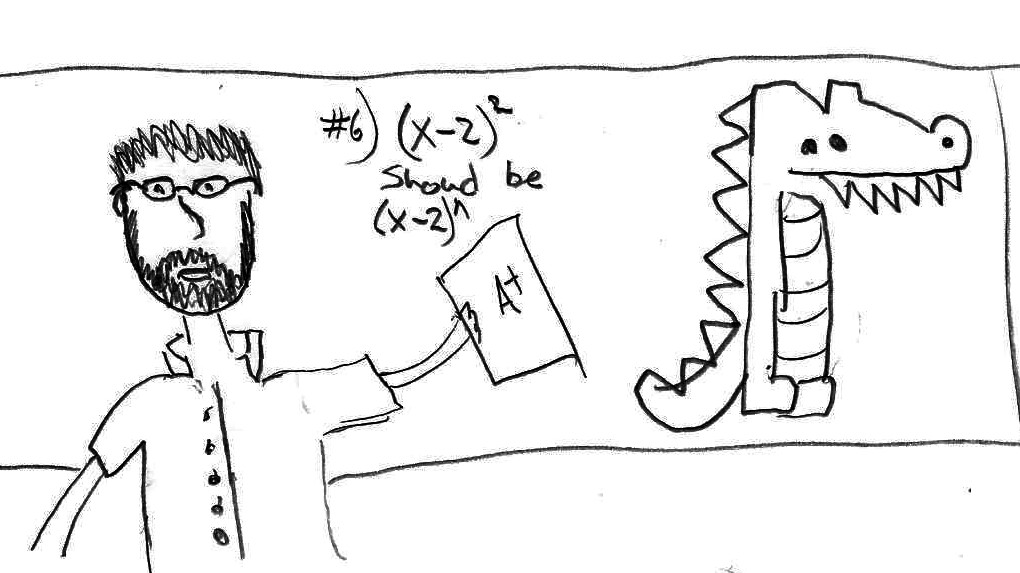 #6) (x-2)²
Should be
(x-2)^
A+